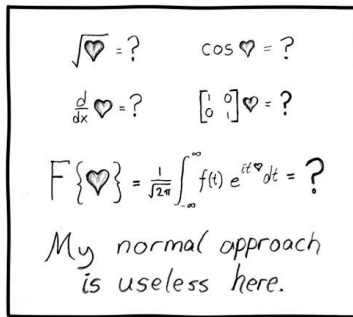 √♥ = ? cos ♥ = ?
d/dx ♥ = ? [1 0
0 1] ♥ = ?
F{♥} = 1/√2π ∫_-∞^∞ f(t) e^it♥ dt = ?
My normal approach
is useless here.